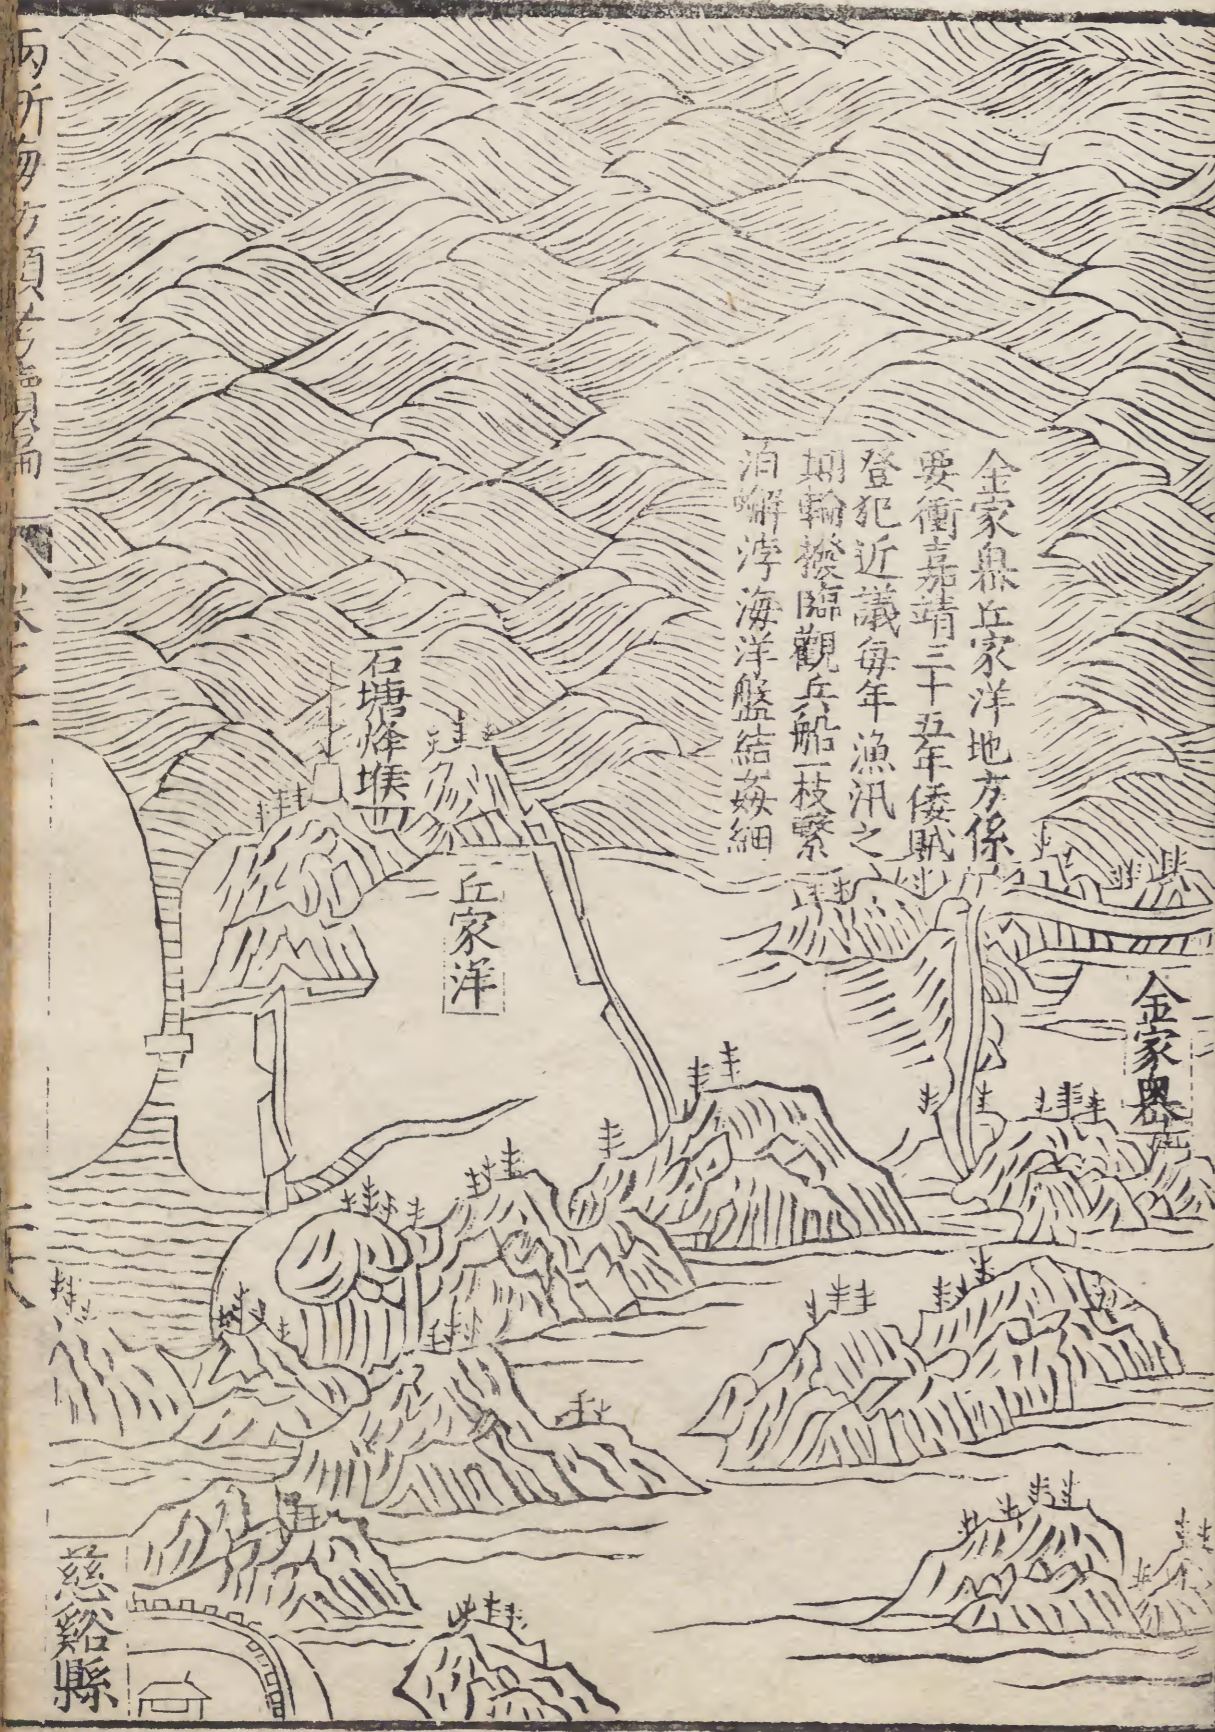 金家嶴丘家洋地方係
要衝嘉靖三十五年倭賊
登犯近議每年漁汛之
期輪撥臨觀兵船一枝繫
泊嘝浡海洋盤結姦細
金家嶴
石塘烽堠
丘家洋
慈谿縣
兩浙海防類考續編
卷之一